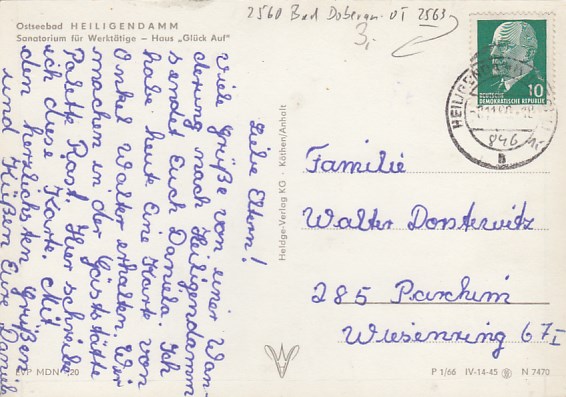 Ostseebad HEILIGENDAMM
Sanatorium für Werktätige – Haus „Glück Auf"
2560 Bad Doberan OT 2563
3,-
10
DEUTSCHE
DEMOKRATISCHE REPUBLIK
HEILIGENDAMM
Liebe Eltern!
Viele Grüße von einer Wan-
derung nach Heiligendamm
sendet Euch Daniela. Ich
habe heute eine Karte von
Onkel Walter erhalten. Wir
machen in der Gaststätte
Palette Rast. Hier schreibe
ich diese Karte. Mit
den herzlichsten Grüßen
und Küßen Eure Daniela
Heldge-Verlag KG · Köthen/Anhalt
Familie
Walter
285 Parchim
Wiesenring 67 I
EVP MDN 20
P 1/66 IV-14-45 N 7470